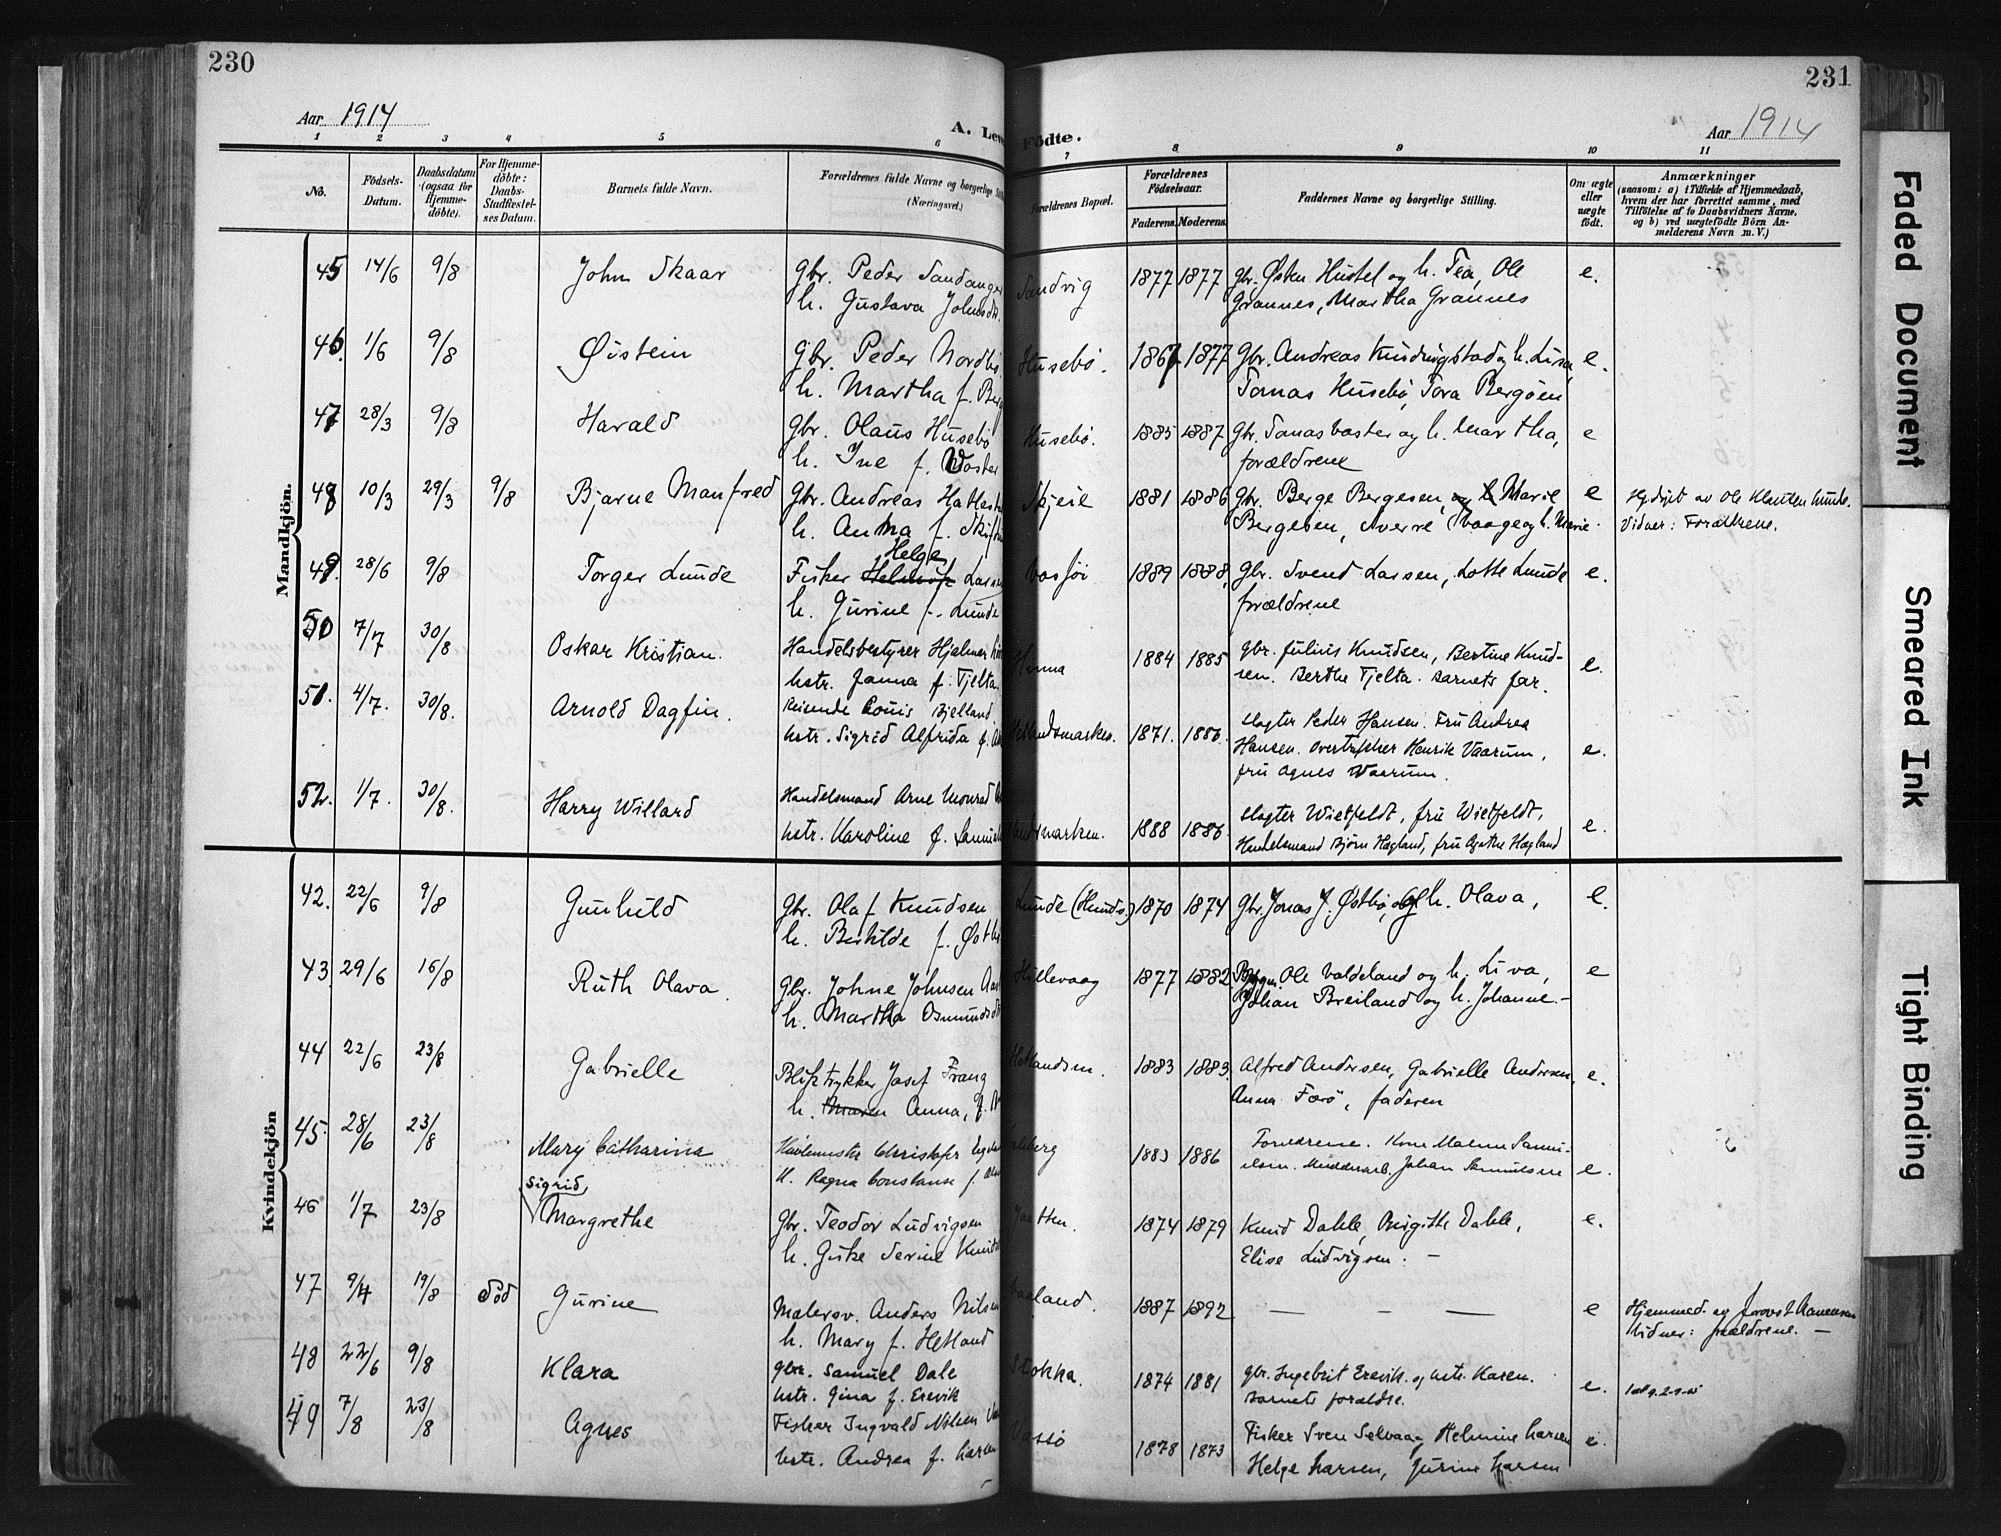 230
231
Aar 1914
A. Leve Födte.
Aar 1914
1 2 3 4 5 6 7 8 9 10 11
No.
Födsels-Datum.
Daabsdatum (ogsaa for Hjemmedöbte).
For Hjemmedöbte: Daabs-Stadfæstelses Datum.
Barnets fulde Navn.
Forældrenes fulde Navne og borgerlige Stilling (Næringsvei.)
Forældrenes Bopæl.
Forældrenes Födselsaar.
Faderens. Moderens.
Faddernes Navne og borgerlige Stilling.
Om ægte eller uægte födt.
Anmærkninger
(saasom: a) i Tilfælde af Hjemmedaab, hvem der har forrettet samme, med Tilföielse af to Daabsvidners Navne, og b) ved uægtefödte Börn Anmelderens Navn m. V.)
Mandkjön.
45 14/6 9/8 John Skaar Gbr. Peder Sandanger Sandvig 1877 1877 gbr. Østen Hustel og h. Tea, Ole e.
h. Gustava Johnsdr. Grannes, Martha Grannes
46. 1/6 9/8 Øistein Gbr. Peder Nordbø Husebö. 1867 1877 Gbr. Andreas og h. Lisa, e.
h. Martha f. Berg Tomas Husebø, Tora Bergöen
47 28/3 9/8 Harald Gbr. Olaus Husebö Husebö. 1885 1887 Gbr. Jonas Voster og h. Martha, e
h. Ine f. Voster forældrene
48 10/3 29/3 9/8 Bjarne Manfred Gbr. Andreas Hatlest Skjeie 1881 1886 Gbr. Berge Bergesen, og h Marie e Hjdøpt av Ole Klausen Lunde.
h. Anna f. Bergesen, Sverre Vaage og h. Marie. Vidner: Forældrene.
49. 28/6 9/8 Torger Lunde Fisker Helge Larsen Vassöi 1889 1888 Gbr. Svend Larsen, Lotte Lunde e.
h. Gurine f. Lunde forældrene
50 7/7 30/8 Oskar Kristian. Handelsbestyrer Hjalmar Hinna 1884 1885 gbr. Julius Knudsen, Bertine Knud- e.
hstr. Janna f. Tjelta. sen. Berthe Tjelta. Barnets far.
51. 4/7. 30/8. Arnold Dagfin. Reisende Louis Bjelland Hetlandsmarken. 1871. 1886. Slagter Peder Hansen. Fru Andrea e.
hstr. Sigrid Alfrida f. Hansen. Henrik Vaarum,
fru Agnes Vaarum.
52. 1/7. 30/8. Harry Willard Handelsmand Arne Monrad marken. 1888 1886. Slagter Wietfeldt, fru Wietfeldt, e.
hstr. Karoline f. Handelsmand Björn Hagland, fru Agathe Hagland
Kvindekjön
42. 22/6 9/8 Gunhild Gbr. Olaf Knudsen Lunde (Hunds.) 1870 1874 Gbr. Jonas J. Østbö, og h. Olava, e.
h. Bertilde f. Østbö
43. 29/6 16/8 Ruth Olava. Gbr. Johne Johnsen Hillevaag 1877 1882 Bygm. Ole Valdeland og h. Liva, e
h. Martha Osmundsdt Johan Breiland og h. Johanne. -
44 22/6 23/8 Gabrielle Bliktrykker Josef Frang Hetlandsm. 1883 1883. Alfred Andersen, Gabrielle Andersen, e.
h. Maren Anna, f. Anna Forö, faderen
45. 28/6 23/8 Mary Catharina Christofer berg 1883 1886 Forældrene. Kone Malene Samu- e.
h. Ragna Constanse f. elsen. Johan Samuelsen
46 1/7 23/8 Sigrid Margrethe Gbr. Teodor Ludvigsen Jaatten. 1874 1879 Knud Dahle, Birgitte Dahle, e.
h. Giske Serine Knuds Elise Ludvigsen. -
47 9/4 19/8 Död Gurine Malersv. Anders Nilsen Vaaland. 1887 1892 — - — e Hjemmed. av provst
h. Mary f. Hetland Vidner: forældrene. -
48 22/6 9/8 Klara gbr. Samuel Dale Stokka. 1874 1881 gbr. Ingebrit Erevik. og hstr. Karen. e.
hstr. Gina f. Erevik Barnets forældre.
49 7/8 23/8 Agnes Fisker Ingvald Nilsen Vassö 1878 1873 Fisker Sven Selvaag, Helmine Larsen e.
hstr. Andrea f. Larsen Helge Larsen, Gurine Larsen
Faded Document
Smeared Ink
Tight Binding